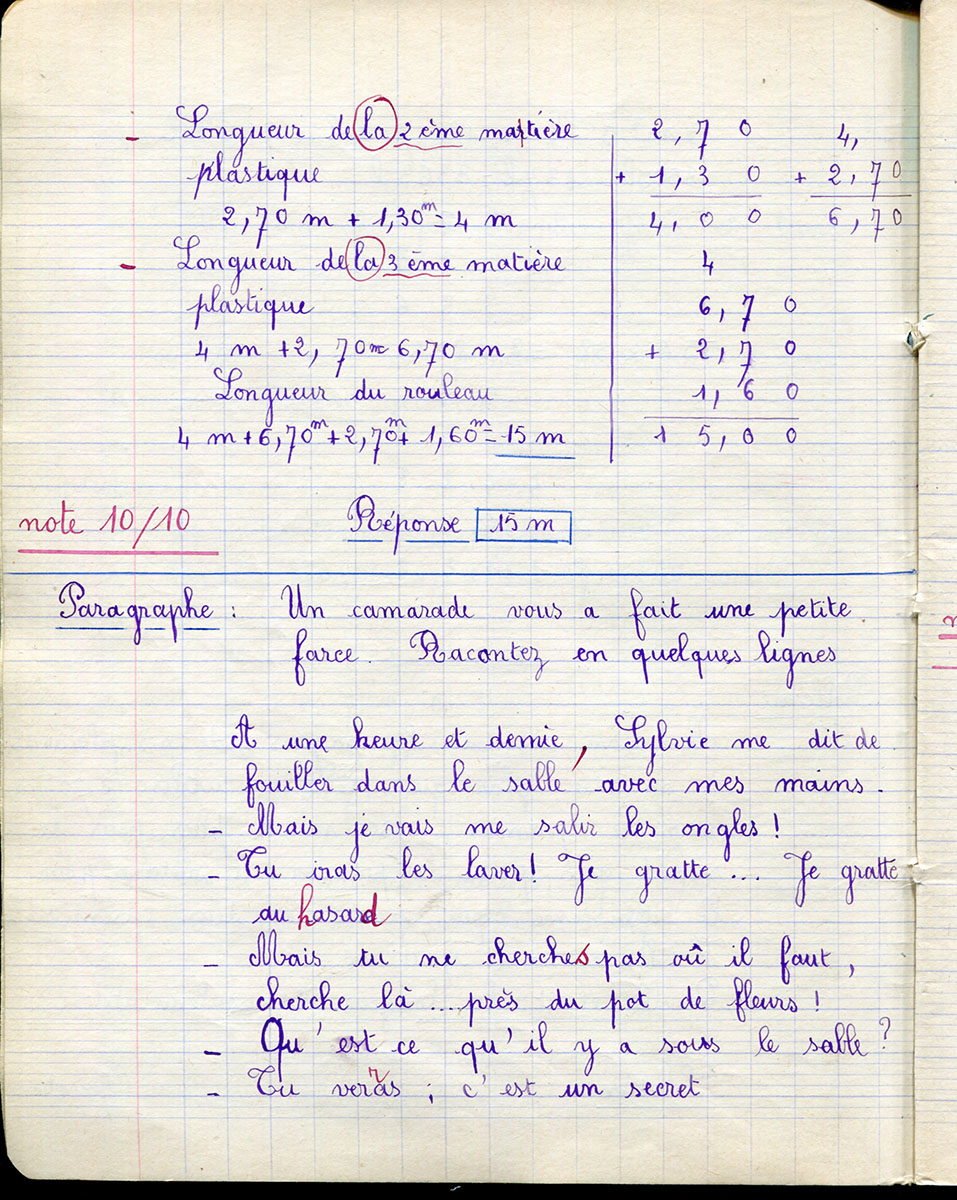 - Longueur de la 2 ème matière
plastique
2,70 m + 1,30 m = 4 m
- Longueur de la 3 ème matière
plastique
4 m + 2,70 m = 6,70 m
Longueur du rouleau
4 m + 6,70 m + 2,70 m + 1,60 m = 15 m
2,70 4,
+ 1,30 + 2,70
4,00 6,70
4
6,70
+ 2,70
1,60
15,00
note 10/10 Réponse 15 m
Paragraphe : Un camarade vous a fait une petite
farce. Racontez en quelques lignes
A une heure et demie, Sylvie me dit de
fouiller dans le sable avec mes mains.
- Mais je vais me salir les ongles !
- Tu iras les laver ! Je gratte ... Je gratte
au hasard
- Mais tu ne cherches pas où il faut,
cherche là ... près du pot de fleurs !
- Qu'est ce qu'il y a sous le sable ?
- Tu verras ; c'est un secret